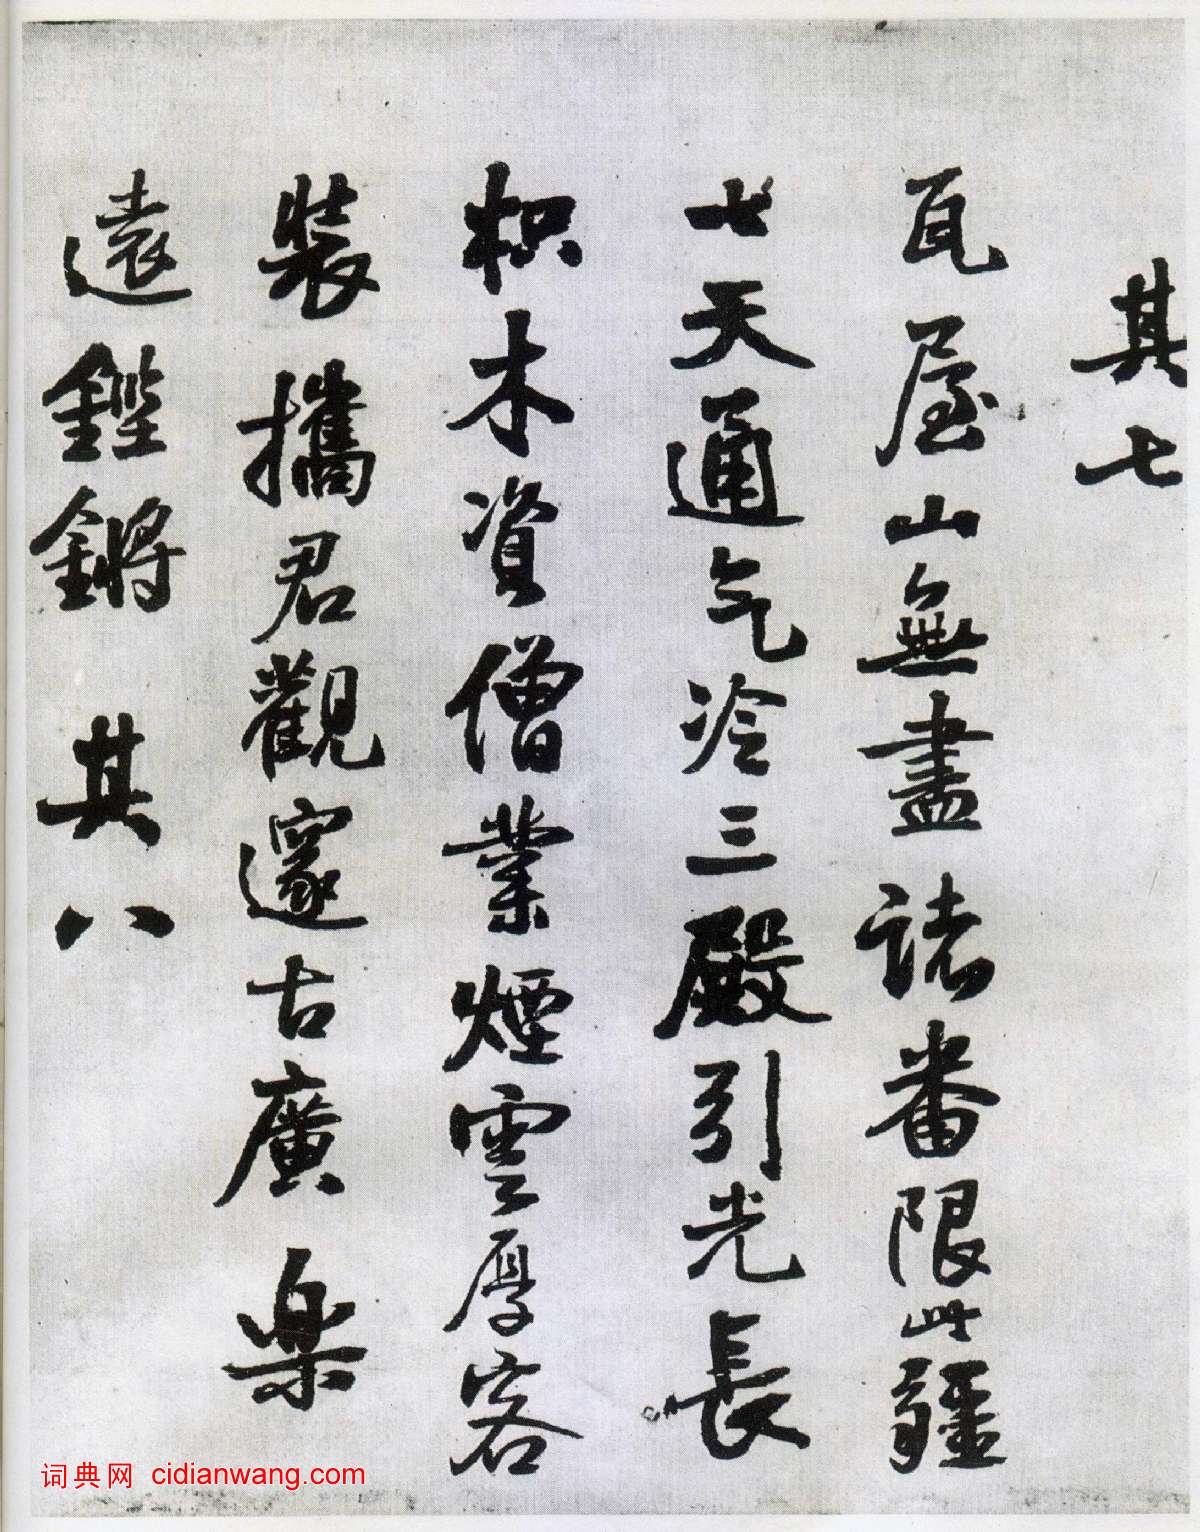 其七
瓦屋山無盡諸番限此疆
七天通气冷三殿引光長
枳木資僧業煙雲厚客
裝攜君觀邃古廣樂
遠鏗鏘 其八
词典网 cidianwang.com